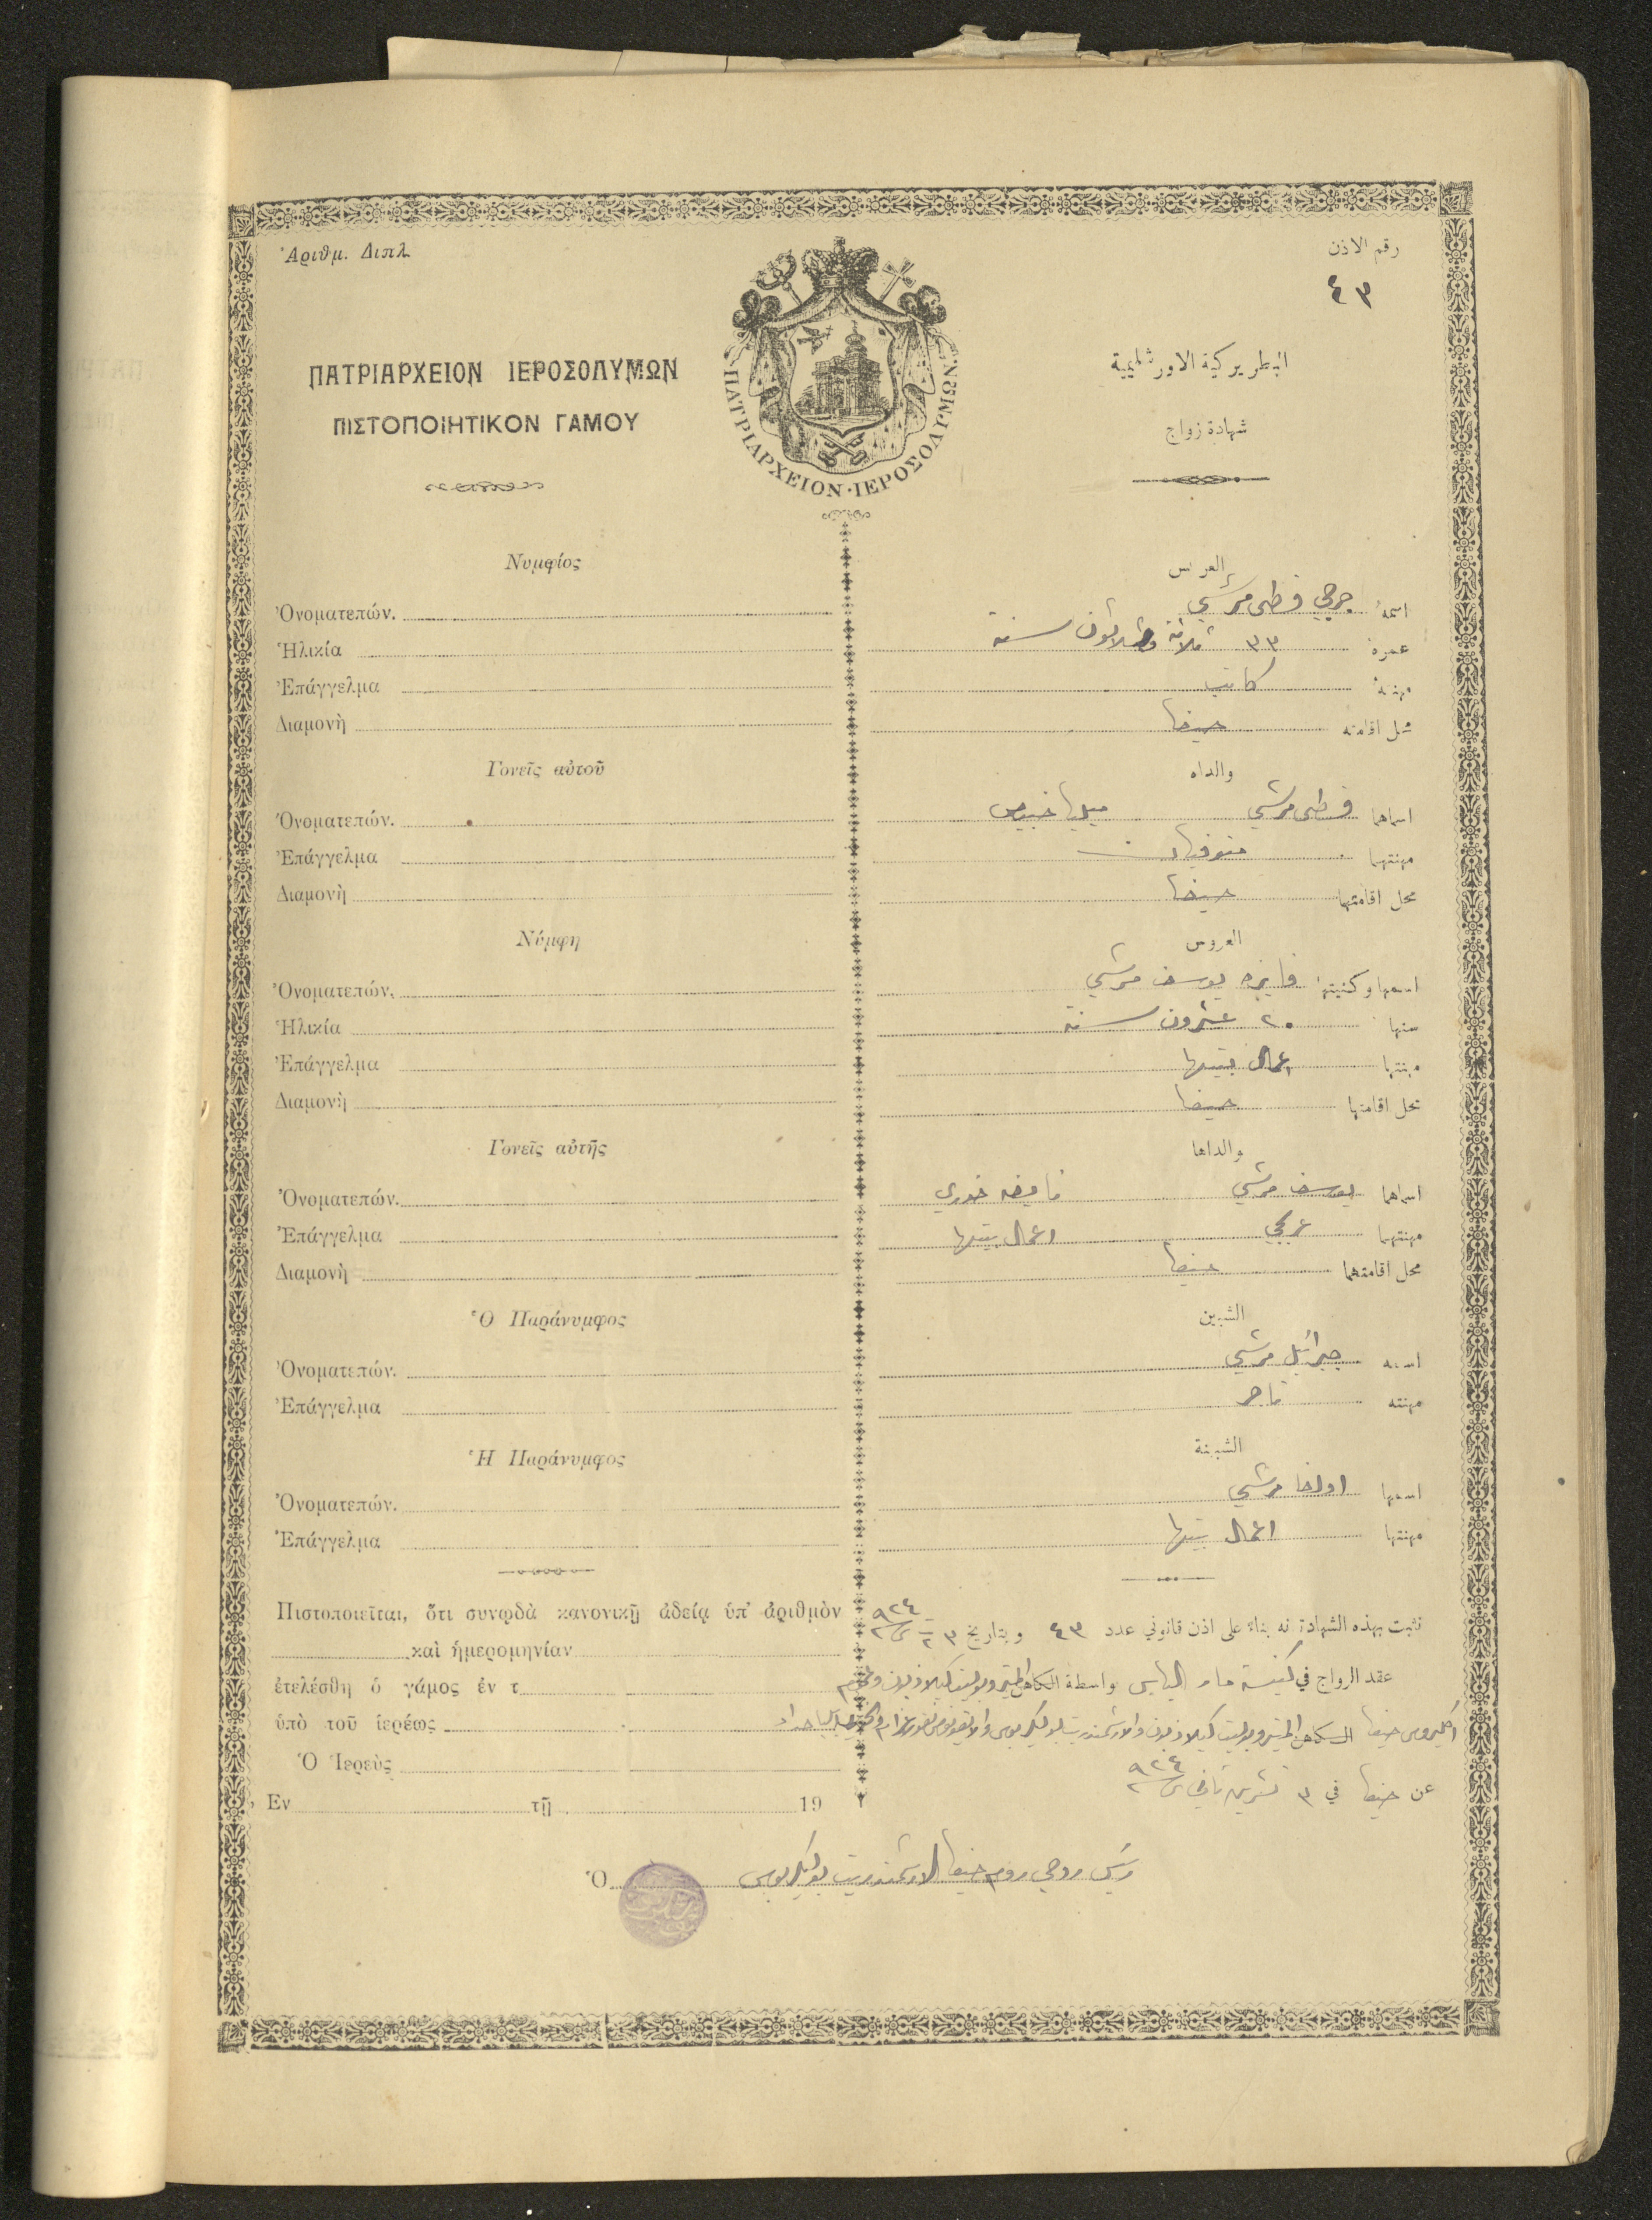 Ἀριθμ. Διπλ.
رقم الاذن
٤٣
ΠΑΤΡΙΑΡΧΕΙΟΝ ΙΕΡΟΣΟΛΥΜΩΝ
ΠΙΣΤΟΠΟΙΗΤΙΚΟΝ ΓΑΜΟΥ
ΠΑΤΡΙΑΡΧΕΙΟΝ·ΙΕΡΟΣΟΛΥΜΩΝ
البطريركية الاورشليمية
شهادة زواج
Νυμφίος
Ὀνοματεπών.
Ἡλικία
Ἐπάγγελμα
Διαμονὴ
Γονεῖς αὐτοῦ
Ὀνοματεπών.
Ἐπάγγελμα
Διαμονὴ
Νύμφη
Ὀνοματεπών.
Ἡλικία
Ἐπάγγελμα
Διαμονὴ
Γονεῖς αὐτῆς
Ὀνοματεπών.
Ἐπάγγελμα
Διαμονὴ
Ὁ Παράνυμφος
Ὀνοματεπών.
Ἐπάγγελμα
Ἡ Παράνυμφος
Ὀνοματεπών.
Ἐπάγγελμα
Πιστοποιεῖται, ὅτι συνῳδὰ κανονικῇ ἀδείᾳ ὑπ' ἀριθμὸν
καὶ ἡμερομηνίαν
ἐτελέσθη ὁ γάμος ἐν τ
ὑπὸ τοῦ ἱερέως
Ὁ Ἱερεὺς
Ἐν τῇ 19
العريس
اسمه جرجي مرشي
عمره ٣٣ ثلاثة وثلاثون سنة
مهنته كاتب
محل اقامته حيفا
والداه
اسماهما مرشي
مهنتهما
محل اقامتهما حيفا
العروس
اسمها وكنيتها فايزه يوسف مرشي
سنها ٢٠ عشرون سنة
مهنتها اعمال بيتها
محل اقامتها حيفا
والداها
اسماهما يوسف مرشي خوري
مهنتهما عربجي اعمال بيتها
محل اقامتهما حيفا
الشبين
اسمه جبرائيل مرشي
مهنته تاجر
الشبينة
اسمها اولغا مرشي
مهنتها اعمال بيتها
تثبت بهذه الشهادة انه بناء على اذن قانوني عدد ٤٣ وبتاريخ ٣ ٩٢٤
عقد الزواج في كنيسة مار الياس بواسطة الكاهن
حيفا الكاهن والارشمندريت حداد
عن حيفا في ٣ تشرين ثاني ٩٢٤
Ὁ رئيس روحي روم حيفا الارشمندريت